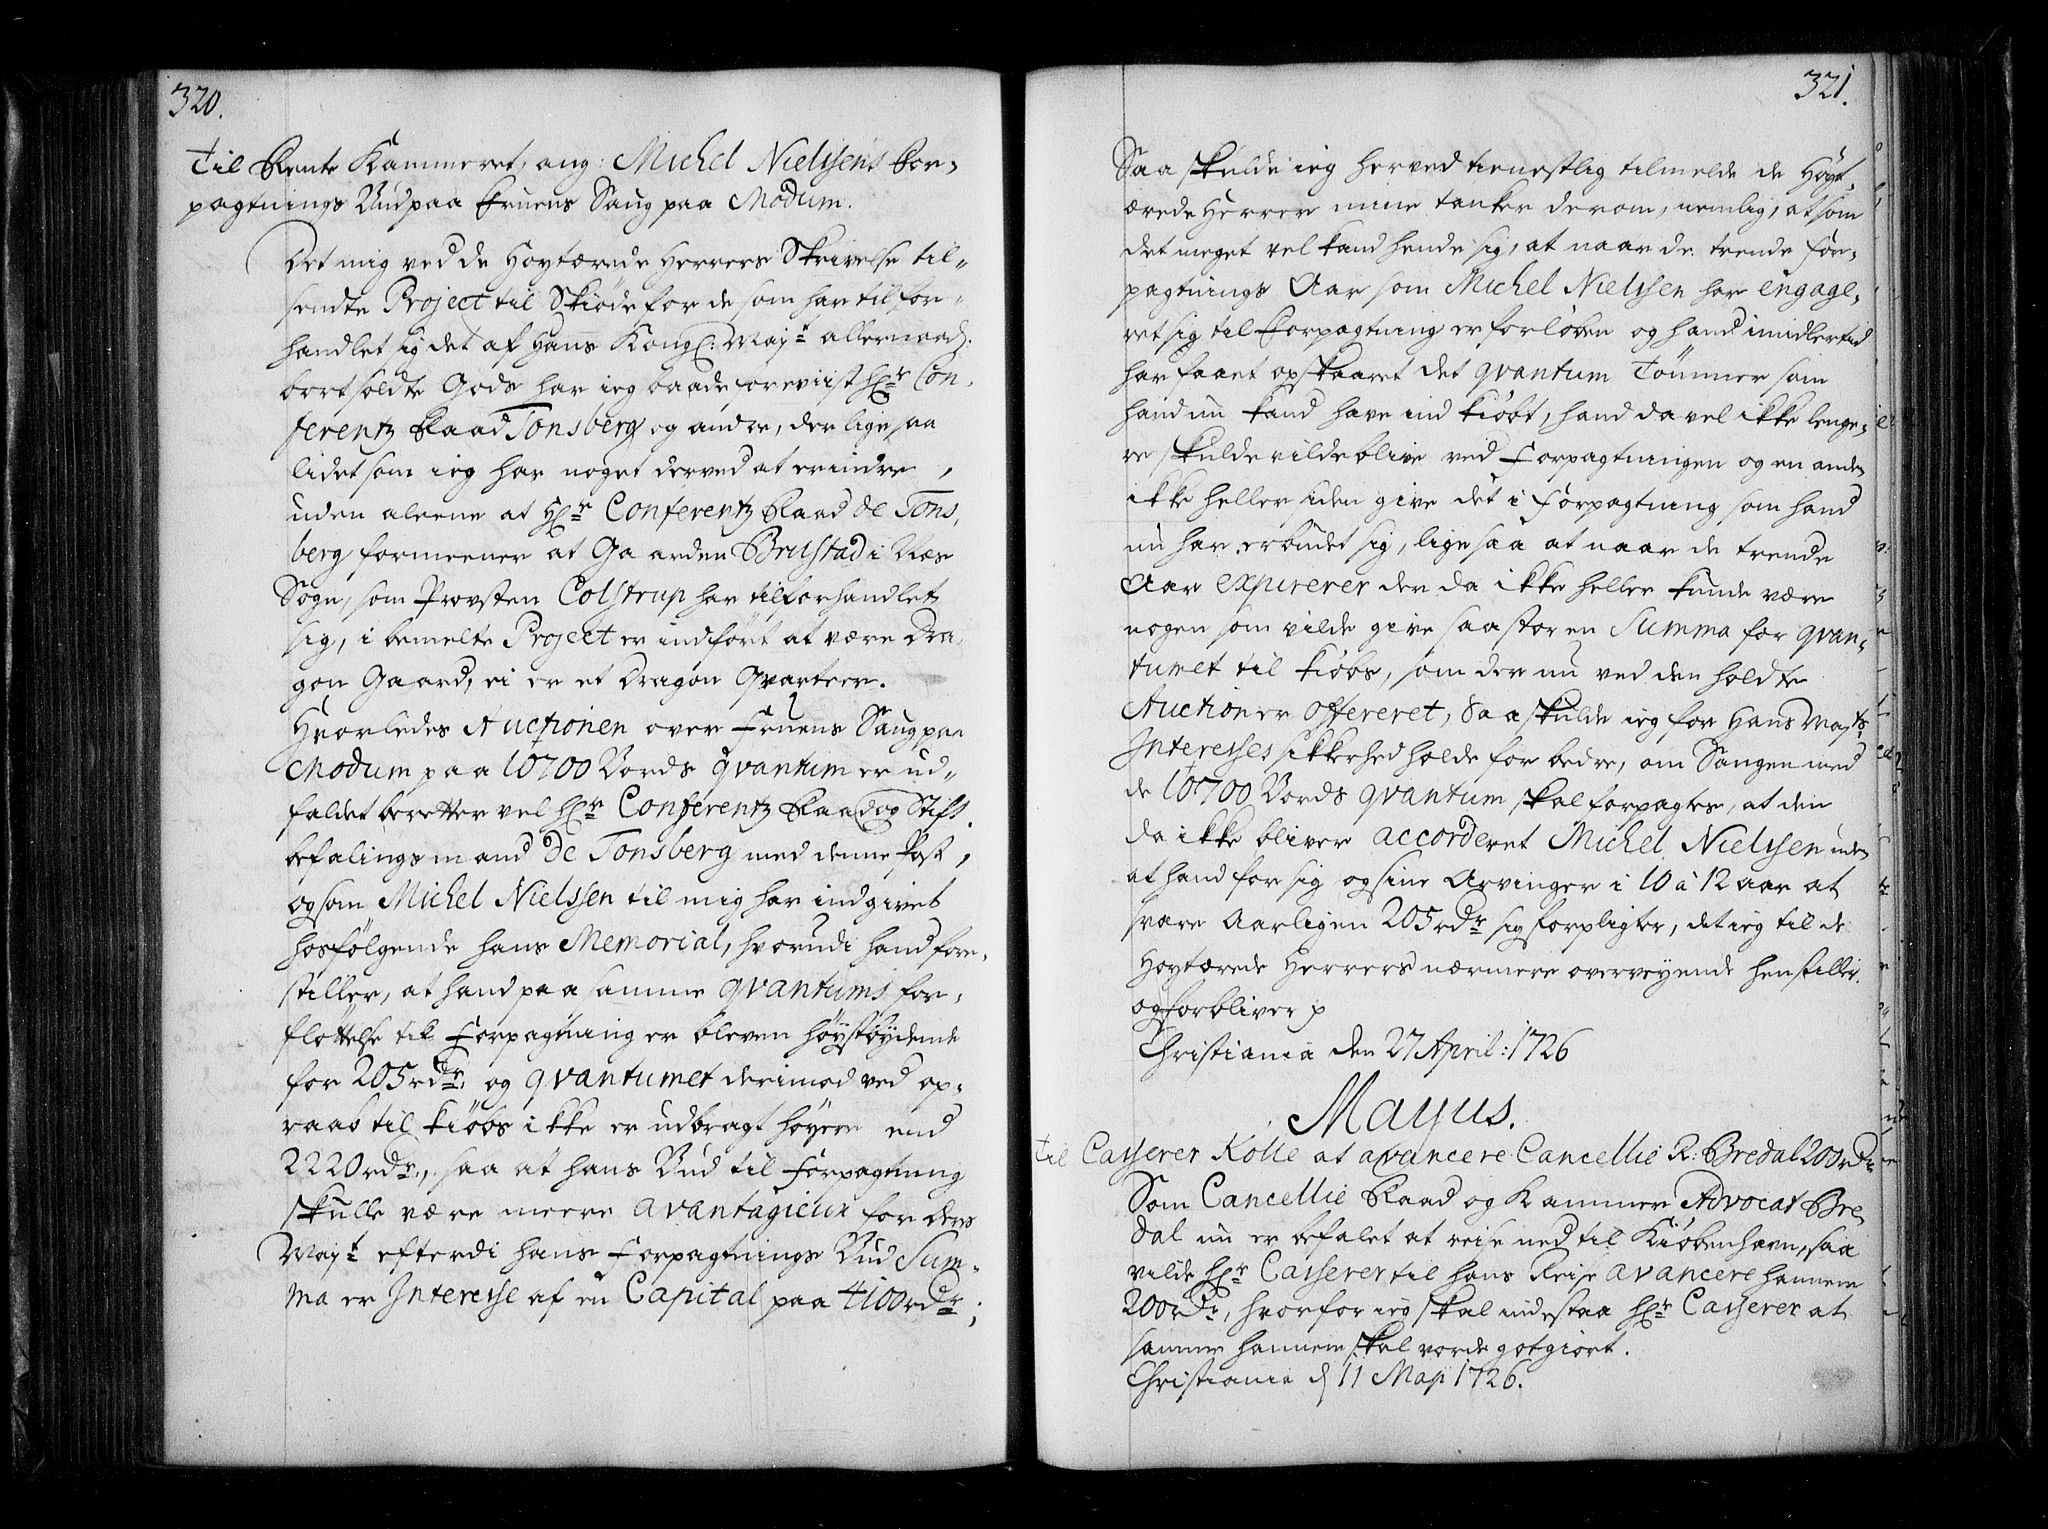 320.
Til Rente Kammeret, ang: Michel Nielssens For-
pagtnings Bud paa Fruens Saug paa Modum.
Det mig ved de Høytærede Herrers Skrivelse til-
sendte Project til Skiøde for de som har til for-
handlet sig det af Hans Kongl: Mayt allernaad:
bortsoldte Gods har ieg baade foreviist Hr Con-
ferentz Raad Tonsberg og andre, der lige saa
lidet som ieg har noget derved at erindre,
uden aleene at Hr Conferentz Raad de Tons-
berg formeener at Gaarden Brustad i Næs
Sogn, som Provsten Colstrup har tilforhandlet
sig, i bemelte Project er indført at være Dra-
gon Gaard, ei er et Dragon Qvarteer.
Hvorledes Auctionen over Fruens Saug paa
Modum paa 10700 Bords qvantum er ud-
faldet beretter vel Hr Conferentz Raad og Stift
befalingsmand de Tonsberg med denne Post,
og som Michel Nielssen til mig har indgivet
hosfølgende hans Memorial, hvorudi hand fore-
stiller, at hand paa samme qvantums for-
fløttelse til Forpagtning er bleven høystbydende
for 205 rdr, og qvantumet derimod ved op-
raab til kiøbs ikke er udbragt høyere end
2220 rdr, saa at hans Bud til forpagtning
skulle være meere avantagieux for deres
Mayt efterdi hans Forpagtnings Bud Sum-
ma er Interesse af en Capital paa 4100 rdr;
321.
Saa skulde ieg herved tienestlig tilmelde de Høyt-
ærede Herrer mine tanker derom, nemlig, at som
det meget vel kand hende sig, at naar de trende for-
pagtnings Aar som Michel Nielssen har engage-
ret sig til Forpagtning er forløben og hand imidlertid
har faaet opskaaret det qvantum Tømmer som
hand nu kand have indkiøbt, hand da vel ikke lenge-
re skulde vilde blive ved Forpagtningen og en anden
ikke heller siden give det i forpagtning som hand
nu har erbudet sig, lige saa at naar de trende
Aar expirerer der da ikke heller kunde være
nogen som vilde give saa stor en Summa for qvan-
tumet til kiøbs, som der nu ved den holdte
Auction er offereret, Saa skulde ieg for Hans Mayts
Interesses sikkerhed holde for bedre, om Saugen med
de 10700 Bords qvantum skal forpagtes, at den
da ikke bliver accorderet Michel Nielssen uden
at hand for sig og sine Arvinger i 10 a 12 aar at
svare Aarligen 205 rdr sig forpligter, det ieg til de
Høytærede Herrers nærmere overveyende henstiller.
og forbliver p
Christiania den 27 April: 1726
Mayus.
Til Casserer Kolle at avancere Cancellie R: Bredal 200 rdr
Som Cancellie Raad og Kammer Advocat Bre-
dal nu er befalet at reise ned til Kiøbenhavn, saa
vilde Hr Casserer til hans Reise avancere hannem
200 rdr, hvorfor ieg skal indestaa Hr Casserer at
samme hannem skal vorde gotgiort.
Christiania d 11 May 1726.